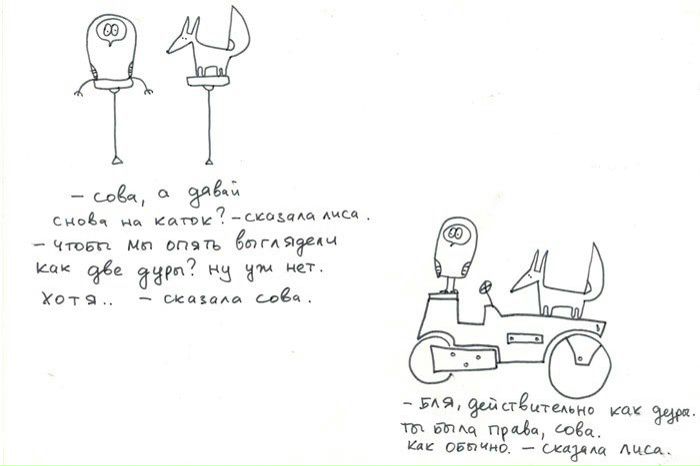 – сова, а давай
снова на каток? – сказала лиса.
– чтобы мы опять выглядели
как две дуры? ну уж нет.
хотя.. – сказала сова.
– бля, действительно как дура.
ты была права, сова.
как обычно. – сказала лиса.